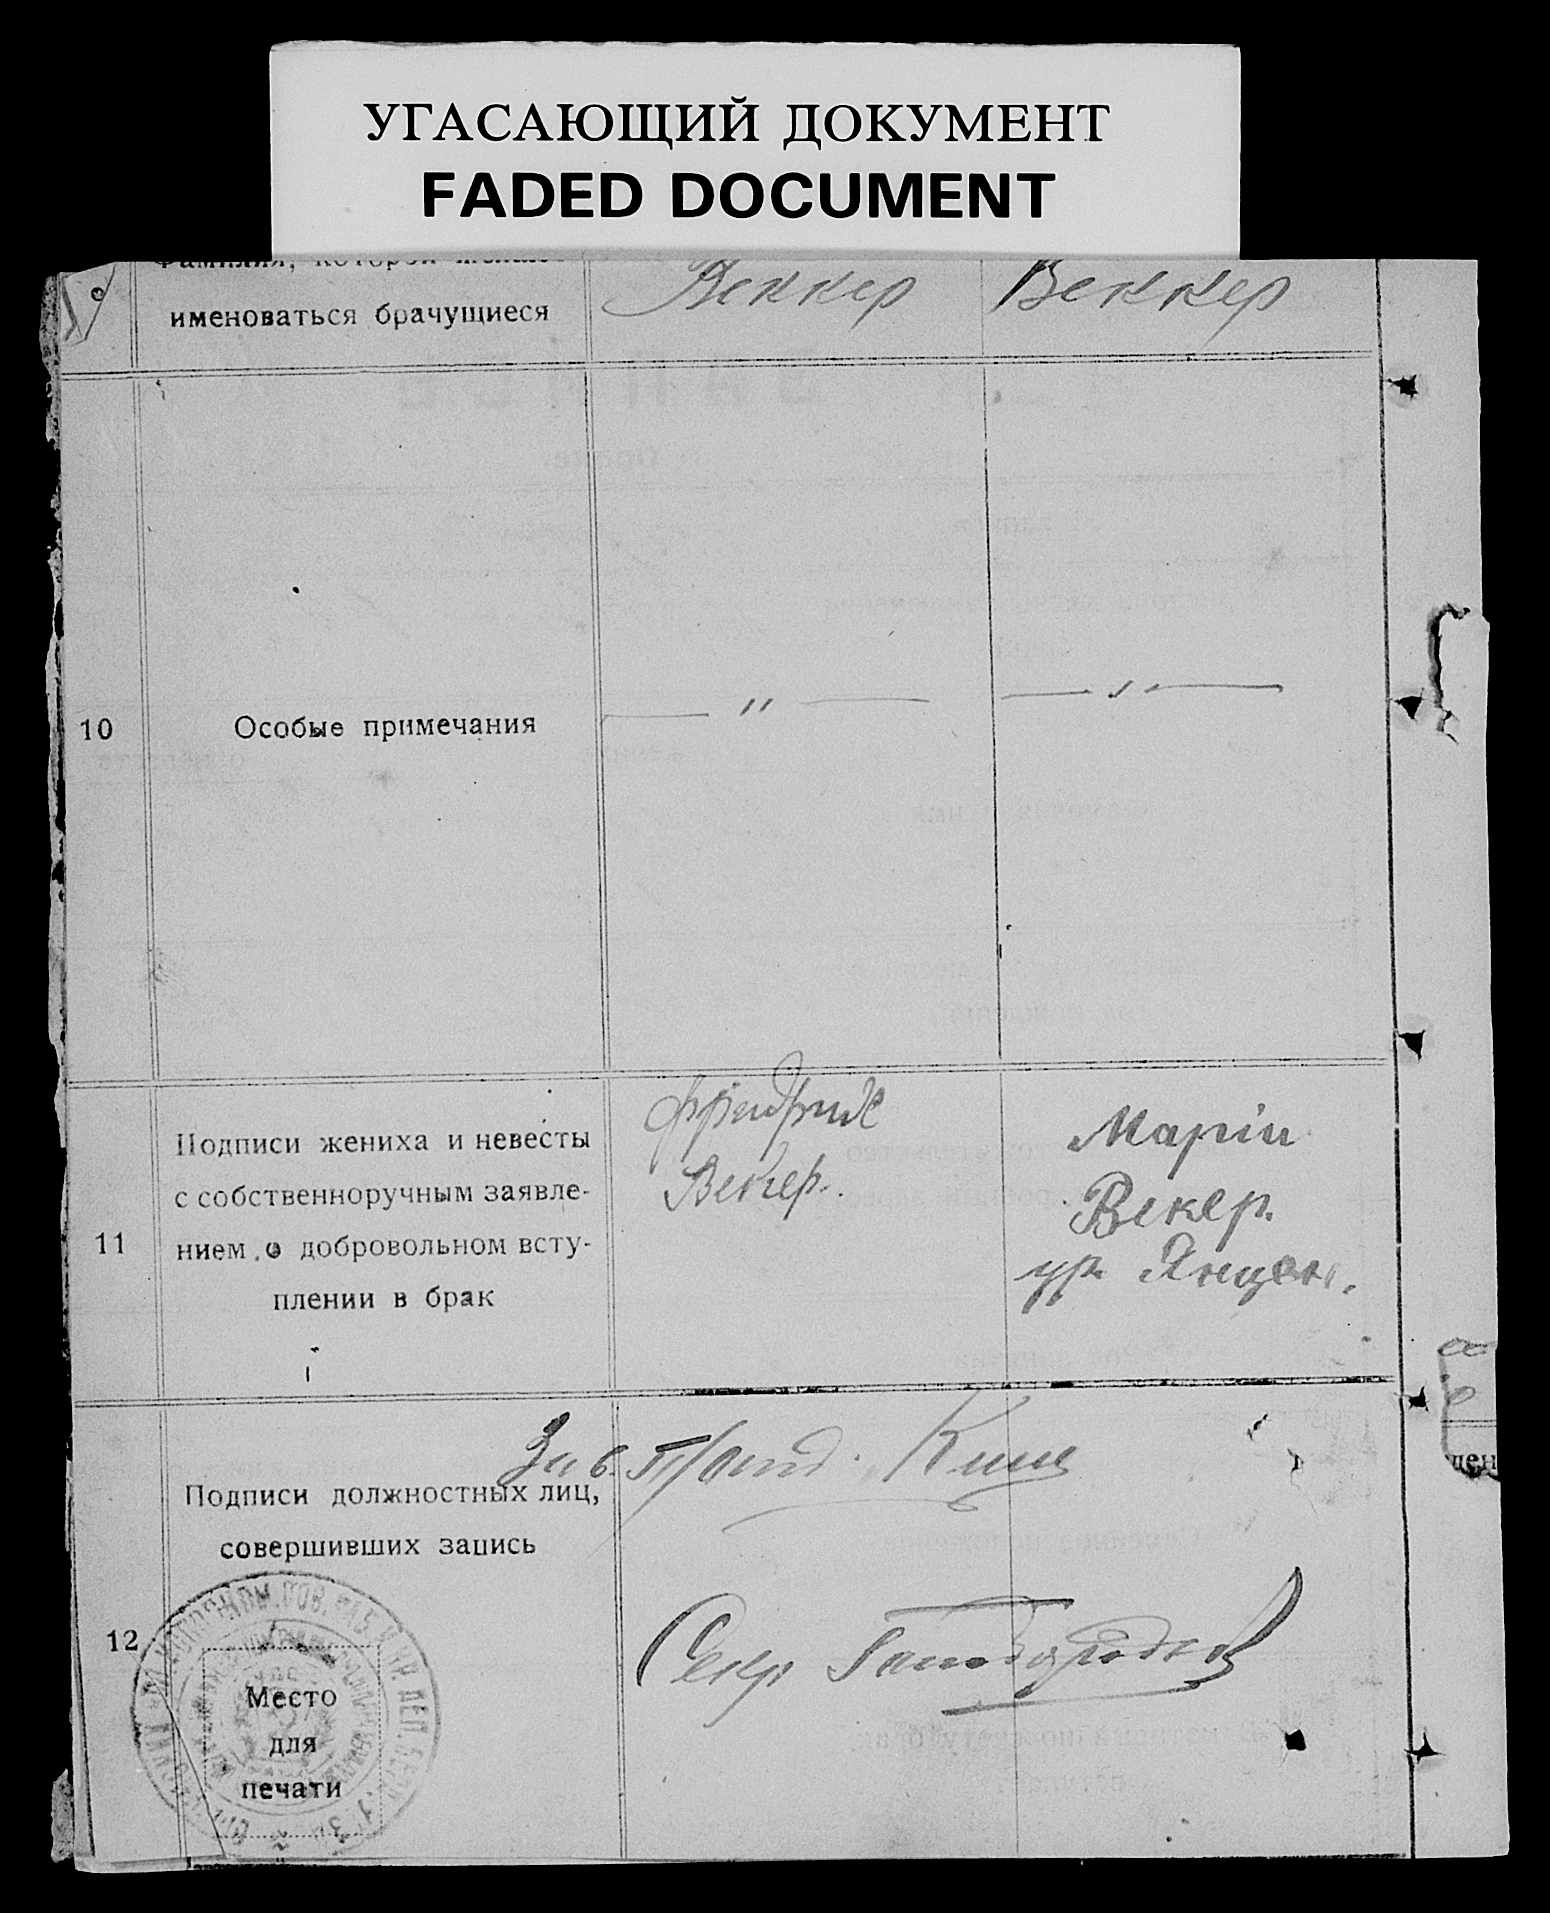 УГАСАЮЩИЙ ДОКУМЕНТ
FADED DOCUMENT
именоваться брачущиеся
Веккер
Веккер
10
Особые примечания
— " —
11
Подписи жениха и невесты
с собственноручным заявле-
нием о добровольном всту-
плении в брак
Фридрих
Векер.
Марiи
Векер.
ур. Янцен.
12
Подписи должностных лиц,
совершивших запись
Зав.
Секр.
Место
для
печати